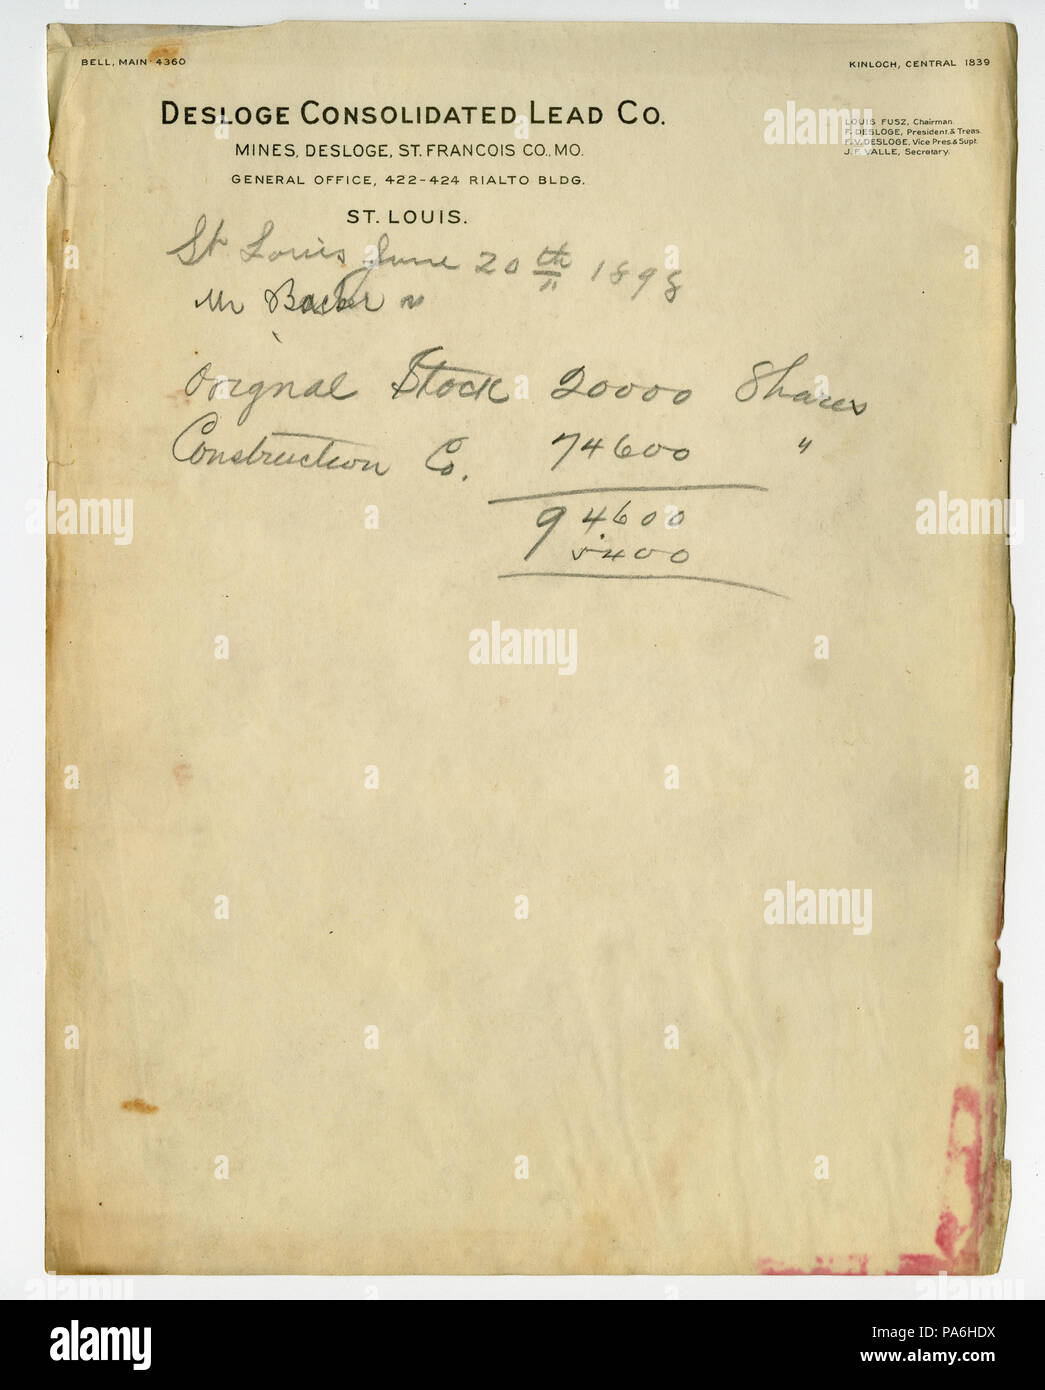 BELL, MAIN 4360
KINLOCH, CENTRAL 1839
DESLOGE CONSOLIDATED LEAD CO.
MINES, DESLOGE, ST. FRANCOIS CO., MO.
GENERAL OFFICE, 422-424 RIALTO BLDG.
ST. LOUIS.
LOUIS FUSZ, Chairman.
F. DESLOGE, President & Treas.
F. V. DESLOGE, Vice Pres. & Supt.
J. F. VALLE, Secretary.
St Louis June 20th 1898
Mr
Orignal Stock 20000 Shares
Construction Co. 74600 "
94600
5400
alamy
alamy
Image ID: PA6HDX
www.alamy.com